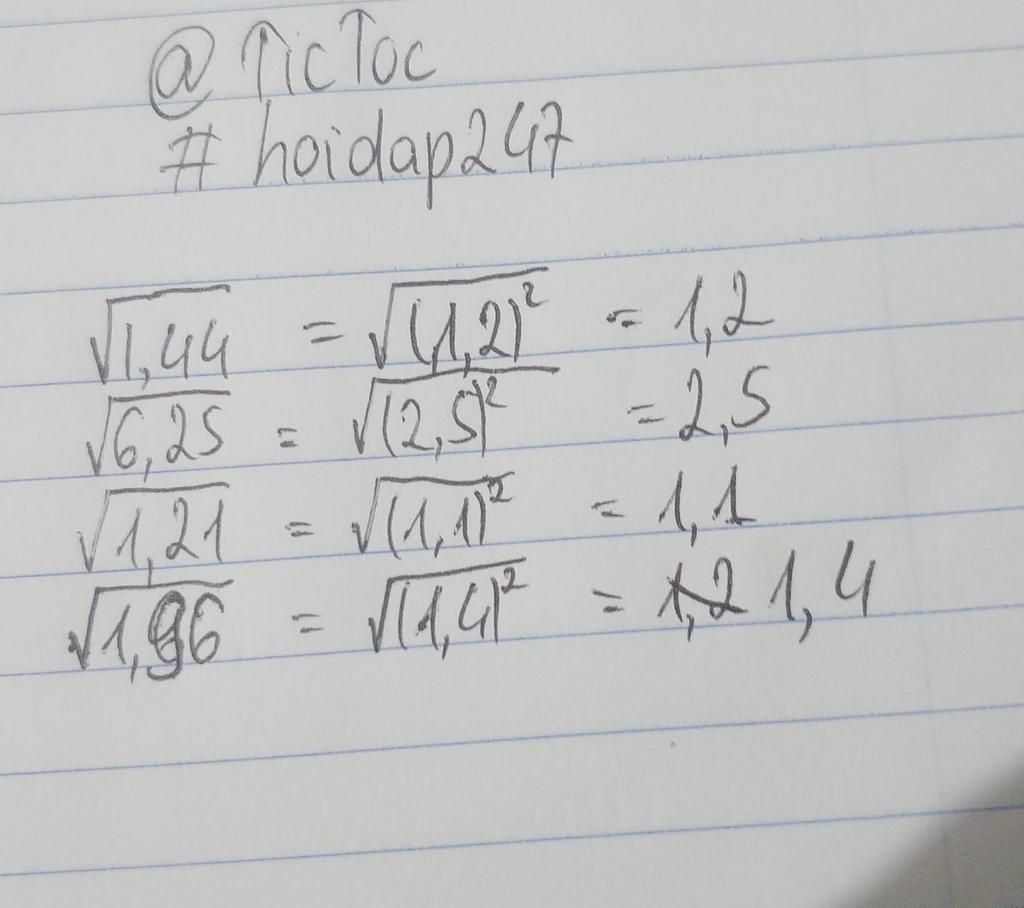 @ TicToc
# hoidap247
√1,44 = √(1,2)² = 1,2
√6,25 = √(2,5)² = 2,5
√1,21 = √(1,1)² = 1,1
√1,96 = √(1,4)² = 1,2 1,4